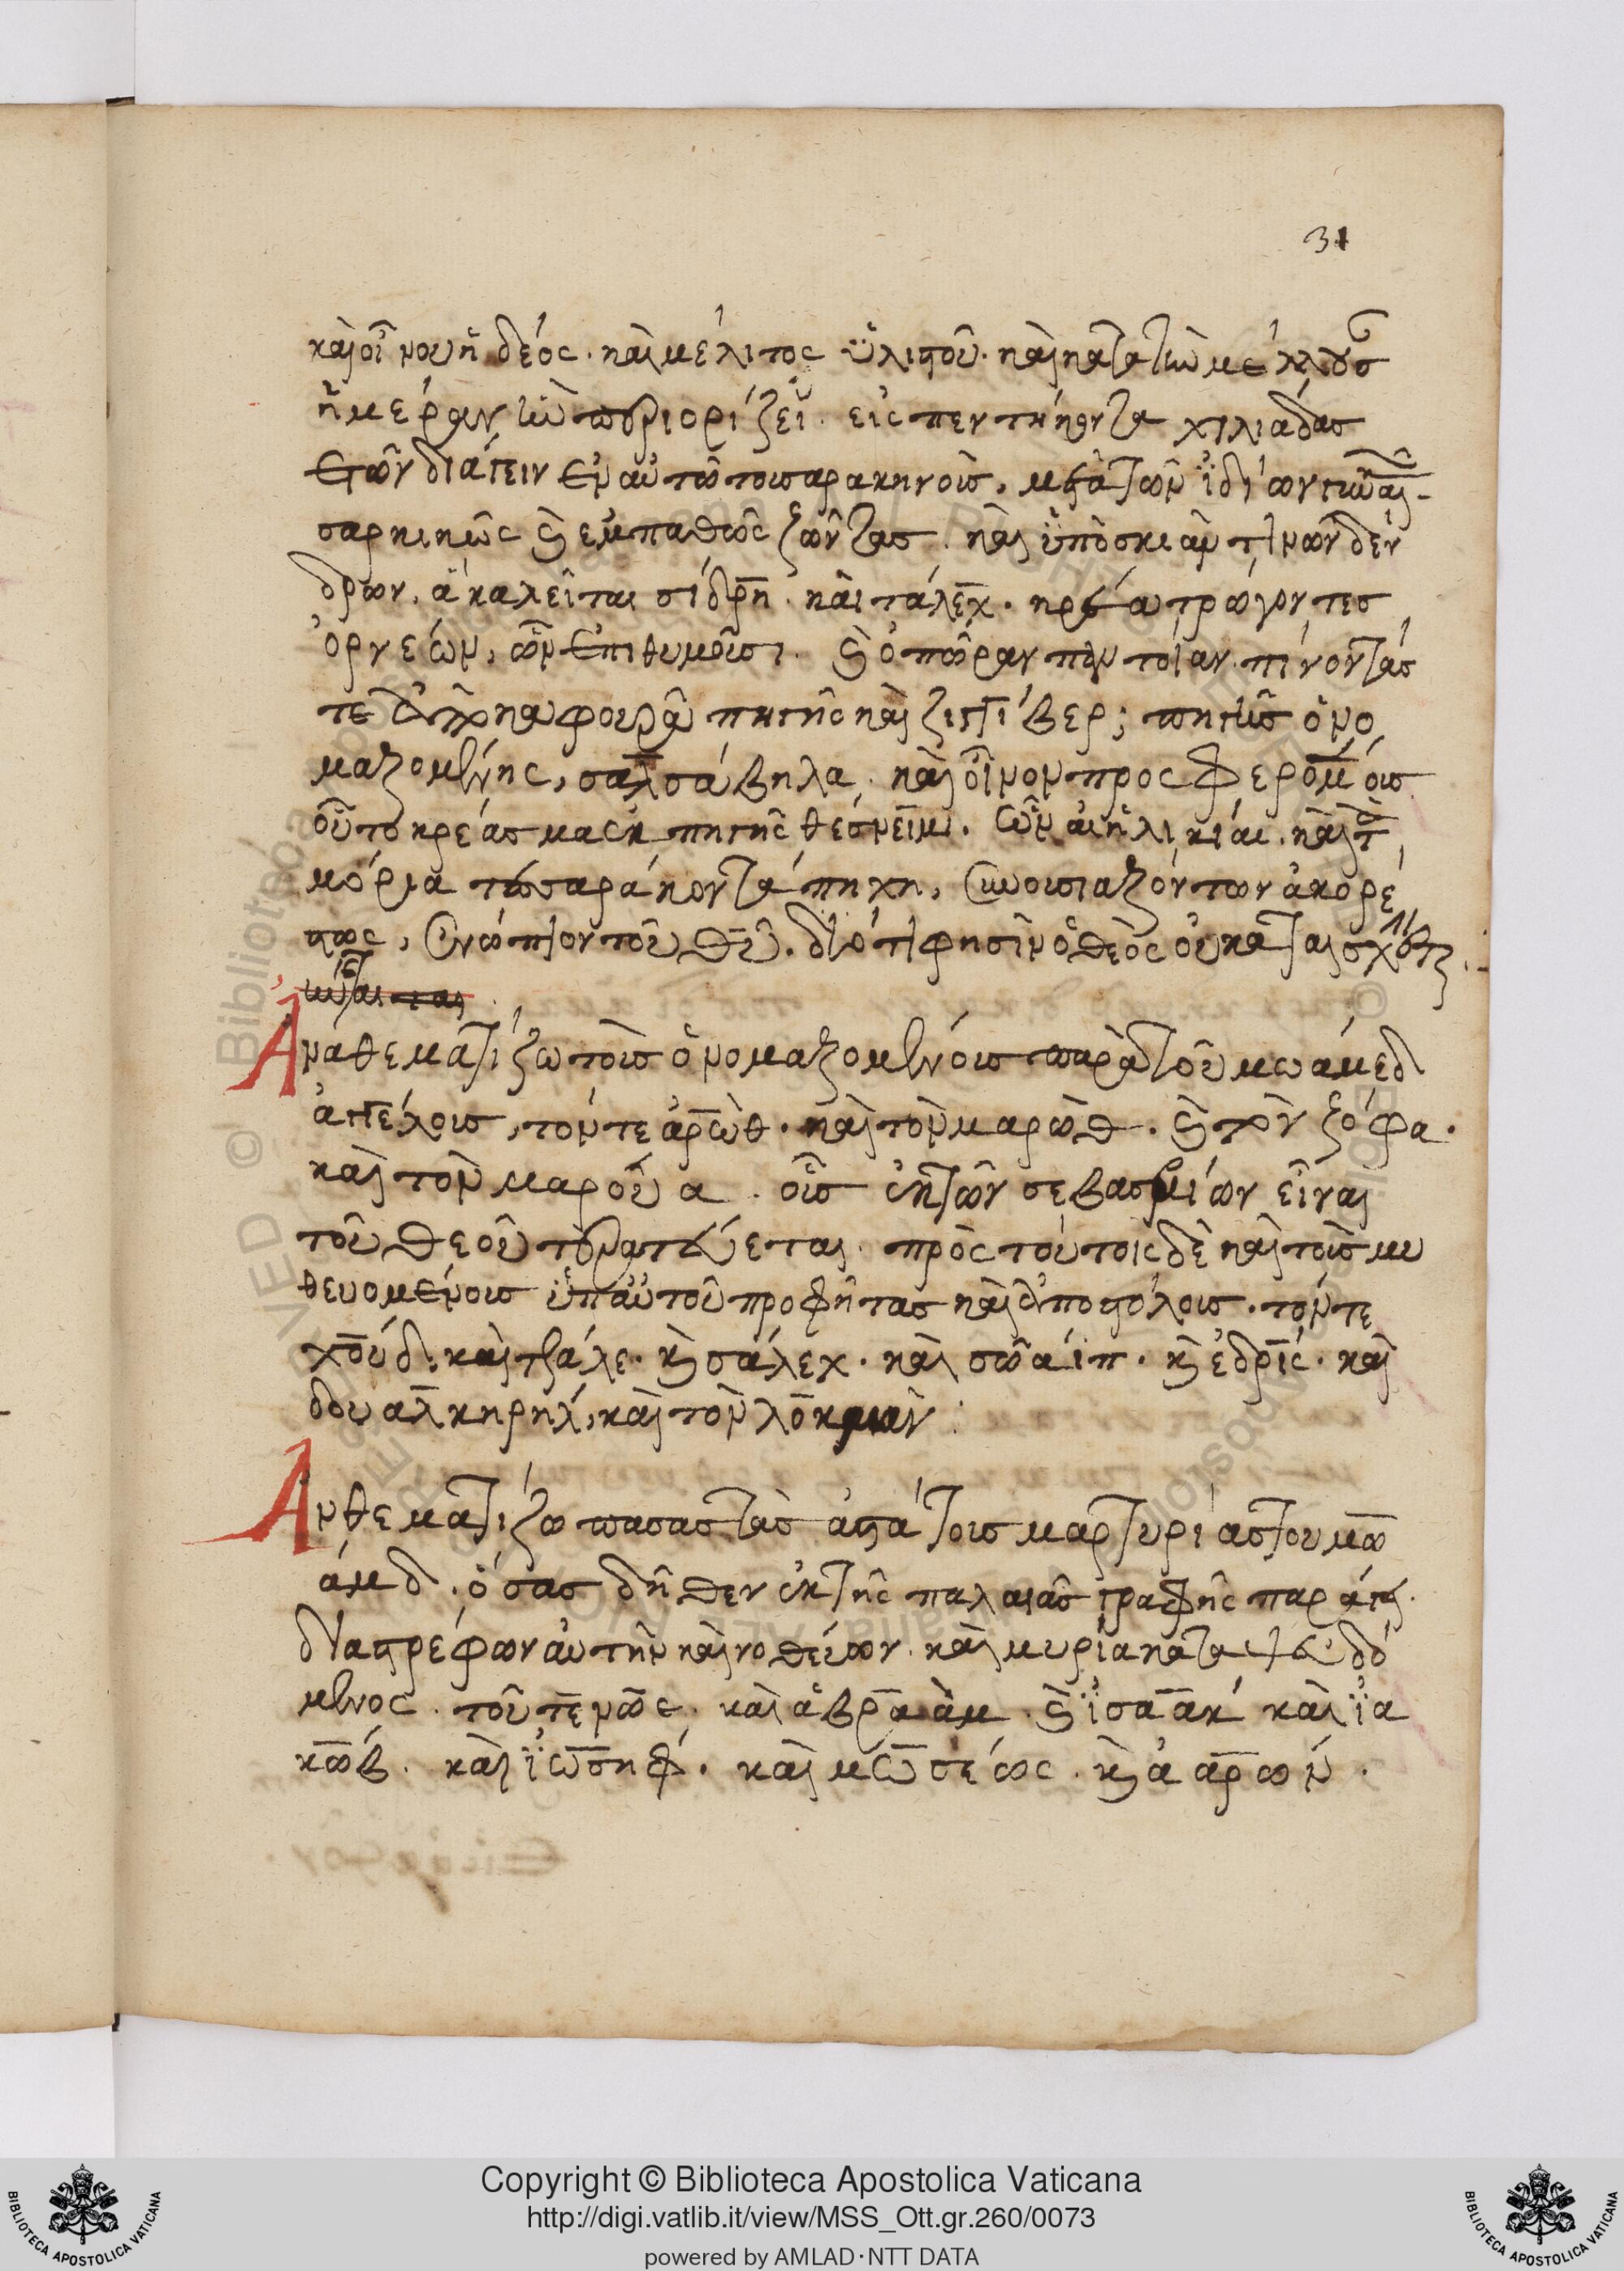 31
καὶ οἴνου ἡδέος· καὶ μέλιτος ὑλιστοῦ· καὶ κατὰ τὴν μέλλουσ
ἡμέραν
εἰς πεντήκοντα χιλιάδας
ἐτῶν διάγειν ἐν αὐτῶ τοὺς σαρακηνοὺς, μετὰ τῶν ἰδίων γυναι-
σαρκικῶς καὶ ἐμπαθῶς ζῶντας· καὶ ὑπὸ σκιὰν τινῶν δέν
δρων, ἃ καλεῖται σίδρη· καὶ τάλεχ· κρέα τρώγοντες
ὀρνέων, ὧν ἐπιθυμοῦσι· καὶ ὀπώραν παντοίαν· πίνοντάς
τε ἀπὸ καφουρᾶ πηγῆς καὶ ζιγγίβερ; πηγῆς ὀνο
μαζομένης, σαλσάβηλα· καὶ οἶνον προσφερομένους
οὗ τὸ κρέας
θέσνειμ· ὧν αἱ ἡλικίαι· καὶ τ
μόρια τεσσαράκοντα πήχη, συνουσιαζόντων ἀκορέ
στως, ἐνώπιον τοῦ θῦ· διότι φησὶν ὁ θεὸς οὐκ αἰσχύ
Ἀναθεματίζω τοὺς ὀνομαζομένους παρὰ τοῦ μωάμεδ
ἀγγέλους, τόν τε ἀρὼθ· καὶ τὸν μαρὼθ· καὶ τὸν ζόφα·
καὶ τὸν μαροῦα· οὓς ἐκ τῶν σεβασμίων εἶναι
τοῦ θεοῦ τερατεύεται· πρὸς τούτοις δὲ καὶ τοὺς μυ
θευομένους ὑπ αὐτοῦ προφήτας καὶ ἀποστόλους· τόν τε
χοὺδ· καὶ τζάλε· καὶ σάλεχ· καὶ σωάϊπ· καὶ ἐδρίς· καὶ
δουαλκηφήλ, καὶ τὸν λοκμὰν:
Ἀνθεματίζω πάσας τὰς ἀστάτους μαρτυρίας τοῦ μω
άμεδ· ὅσας δῆθεν ἐκ τῆς παλαιᾶς γραφῆς παράγει·
διαστρέφων αὐτὴν καὶ νοθεύων· καὶ μυρία καταψευδό
μενος· τοῦ τε νῶε· καὶ ἀβραὰμ· καὶ ἰσαὰκ καὶ ἰα
κώβ· καὶ ἰωσήφ· καὶ μωσέως· καὶ ἀαρών·
Copyright © Biblioteca Apostolica Vaticana
http://digi.vatlib.it/view/MSS_Ott.gr.260/0073
powered by AMLAD·NTT DATA
BIBLIOTECA APOSTOLICA VATICANA
BIBLIOTECA APOSTOLICA VATICANA